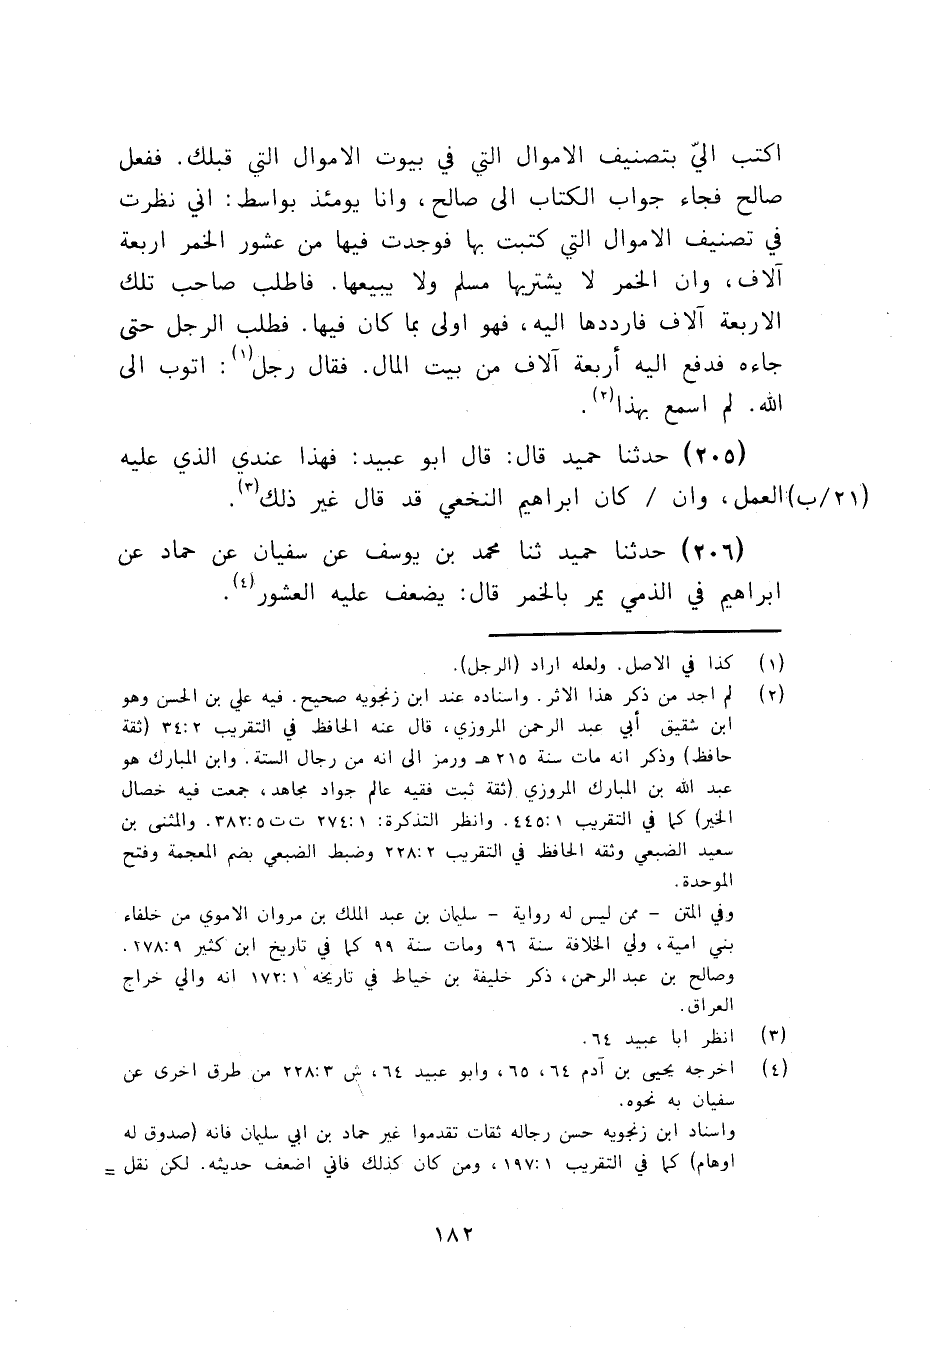 اكتب اليّ بتصنيف الاموال التي في بيوت الاموال التي قبلك. ففعل
صالح فجاء جواب الكتاب الى صالح، وانا يومئذ بواسط: اني نظرت
في تصنيف الاموال التي كتبت بها فوجدت فيها من عشور الخمر اربعة
آلاف، وان الخمر لا يشتريها مسلم ولا يبيعها. فاطلب صاحب تلك
الاربعة آلاف فارددها اليه، فهو اولى بما كان فيها. فطلب الرجل حتى
جاءه فدفع اليه أربعة آلاف من بيت المال. فقال رجل(١): اتوب الى
الله. لم اسمع بهذا(٢).
(٢٠٥) حدثنا حميد قال: قال ابو عبيد: فهذا عندي الذي عليه
(٢١/ب) العمل، وان / كان ابراهيم النخعي قد قال غير ذلك(٣).
(٢٠٦) حدثنا حميد ثنا محمد بن يوسف عن سفيان عن حماد عن
ابراهيم في الذمي يمر بالخمر قال: يضعف عليه العشور(٤).
(١) كذا في الاصل. ولعله اراد (الرجل).
(٢) لم اجد من ذكر هذا الاثر. واسناده عند ابن زنجويه صحيح. فيه علي بن الحسن وهو
ابن شقيق أبي عبد الرحمن المروزي، قال عنه الحافظ في التقريب ٣٤:٢ (ثقة
حافظ) وذكر انه مات سنة ٢١٥ هـ ورمز الى انه من رجال الستة. وابن المبارك هو
عبد الله بن المبارك المروزي (ثقة ثبت فقيه عالم جواد مجاهد، جمعت فيه خصال
الخير) كما في التقريب ٤٤٥:١. وانظر التذكرة: ٢٧٤:١ ت ت ٣٨٢:٥. والمثنى بن
سعيد الضبعي وثقه الحافظ في التقريب ٢٢٨:٢ وضبط الضبعي بضم المعجمة وفتح
الموحدة.
وفي المتن - ممن ليس له رواية - سليمان بن عبد الملك بن مروان الاموي من خلفاء
بني امية، ولي الخلافة سنة ٩٦ ومات سنة ٩٩ كما في تاريخ ابن كثير ٢٧٨:٩.
وصالح بن عبد الرحمن، ذكر خليفة بن خياط في تاريخه ١٧٢:١ انه والي خراج
العراق.
(٣) انظر ابا عبيد ٦٤.
(٤) اخرجه يحيى بن آدم ٦٤، ٦٥، وابو عبيد ٦٤، ش ٢٢٨:٣ من طرق اخرى عن
سفيان به نحوه.
واسناد ابن زنجويه حسن رجاله ثقات تقدموا غير حماد بن ابي سليمان فانه (صدوق له
اوهام) كما في التقريب ١٩٧:١، ومن كان كذلك فاني اضعف حديثه. لكن نقل =
١٨٢